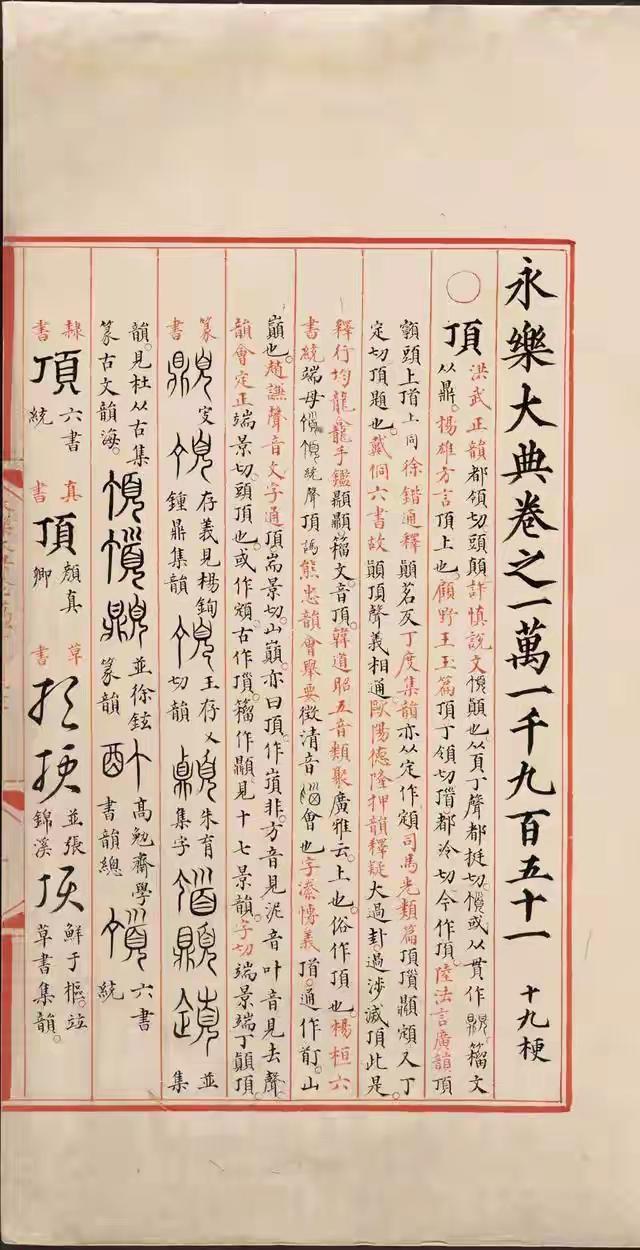 永樂大典卷之一萬一千九百五十一 十九梗
○頂
洪武正韻都領切頭顛許慎說文顛也从頁丁聲都挺切或从作籀文
从鼎楊雄方言頂上也顧野王玉篇頂丁領切都冷切今作頂陸法言廣韻頂
頭上上同徐鍇通釋顛茗反丁度集韻亦从定作顁司馬光類篇頂顁又丁
定切頂題也戴侗六書故顛頂聲義相通歐陽德隆押韻釋疑大過卦過涉滅頂此是
釋行均龍龕手鑑籀文音頂韓道昭五音類聚廣雅云上也俗作頂也楊桓六
書統端母統聲頂譌熊忠韻會舉要徵清音會也字潫博義通作山
巔也趙謙聲音文字通頂耑景切山巔亦曰頂作嵿非方音見泥音叶音見去聲
韻會定正端景切頭頂也或作顁古作籀作見十七景韻字切端景端丁顛頂
篆書 存乂見楊鉤鍾鼎集韻 王存乂切韻 朱育集字 並集
韻見杜从古集篆古文韻海 並徐鉉篆韻 高勉齋學書韻總 六書統
隸書 頂 六書統 真書 頂 顏真卿 草書 並張錦溪 鮮于樞並草書集韻